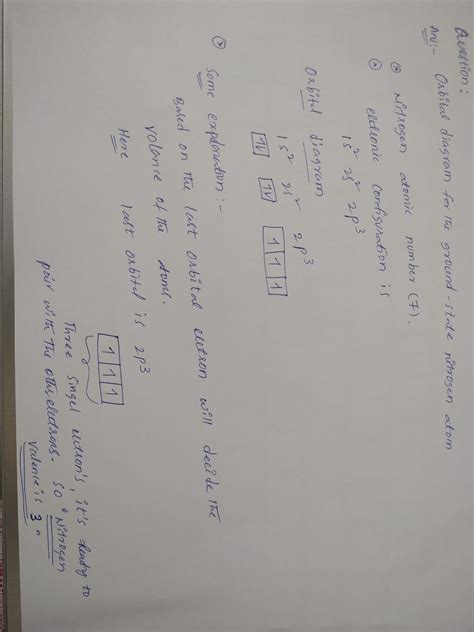 Question:
Ans:- Orbital diagram for the ground-state nitrogen atom.
Nitrogen atomic number (7).
eletronic configuration is
1s² 2s² 2p³
Orbital diagram
1s² 2s² 2p³
1↓ 1↓ 1 1 1
Some explanation:-
Based on the last orbital eletron will decide the
valence of the atoms.
Here last orbital is 2p³
1 1 1
Three singel eletron's, it's ready to
pair with the other eletrons. So "Nitrogen
valence is 3"